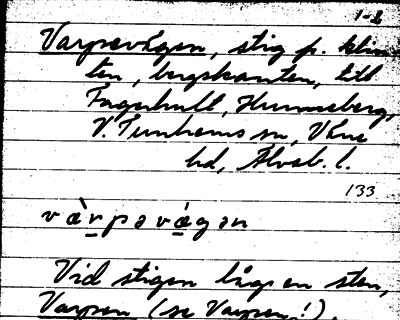 1-2
Varpevägen, stig p. klin-
ten, bergskanten, till
Fagerhult, Hunneberg,
V. Tunhems sn, Väne
hd, Älvsb. l.
133
vàrpəvägən
Vid stigen låg en sten,
Varpen (se Varpen!).